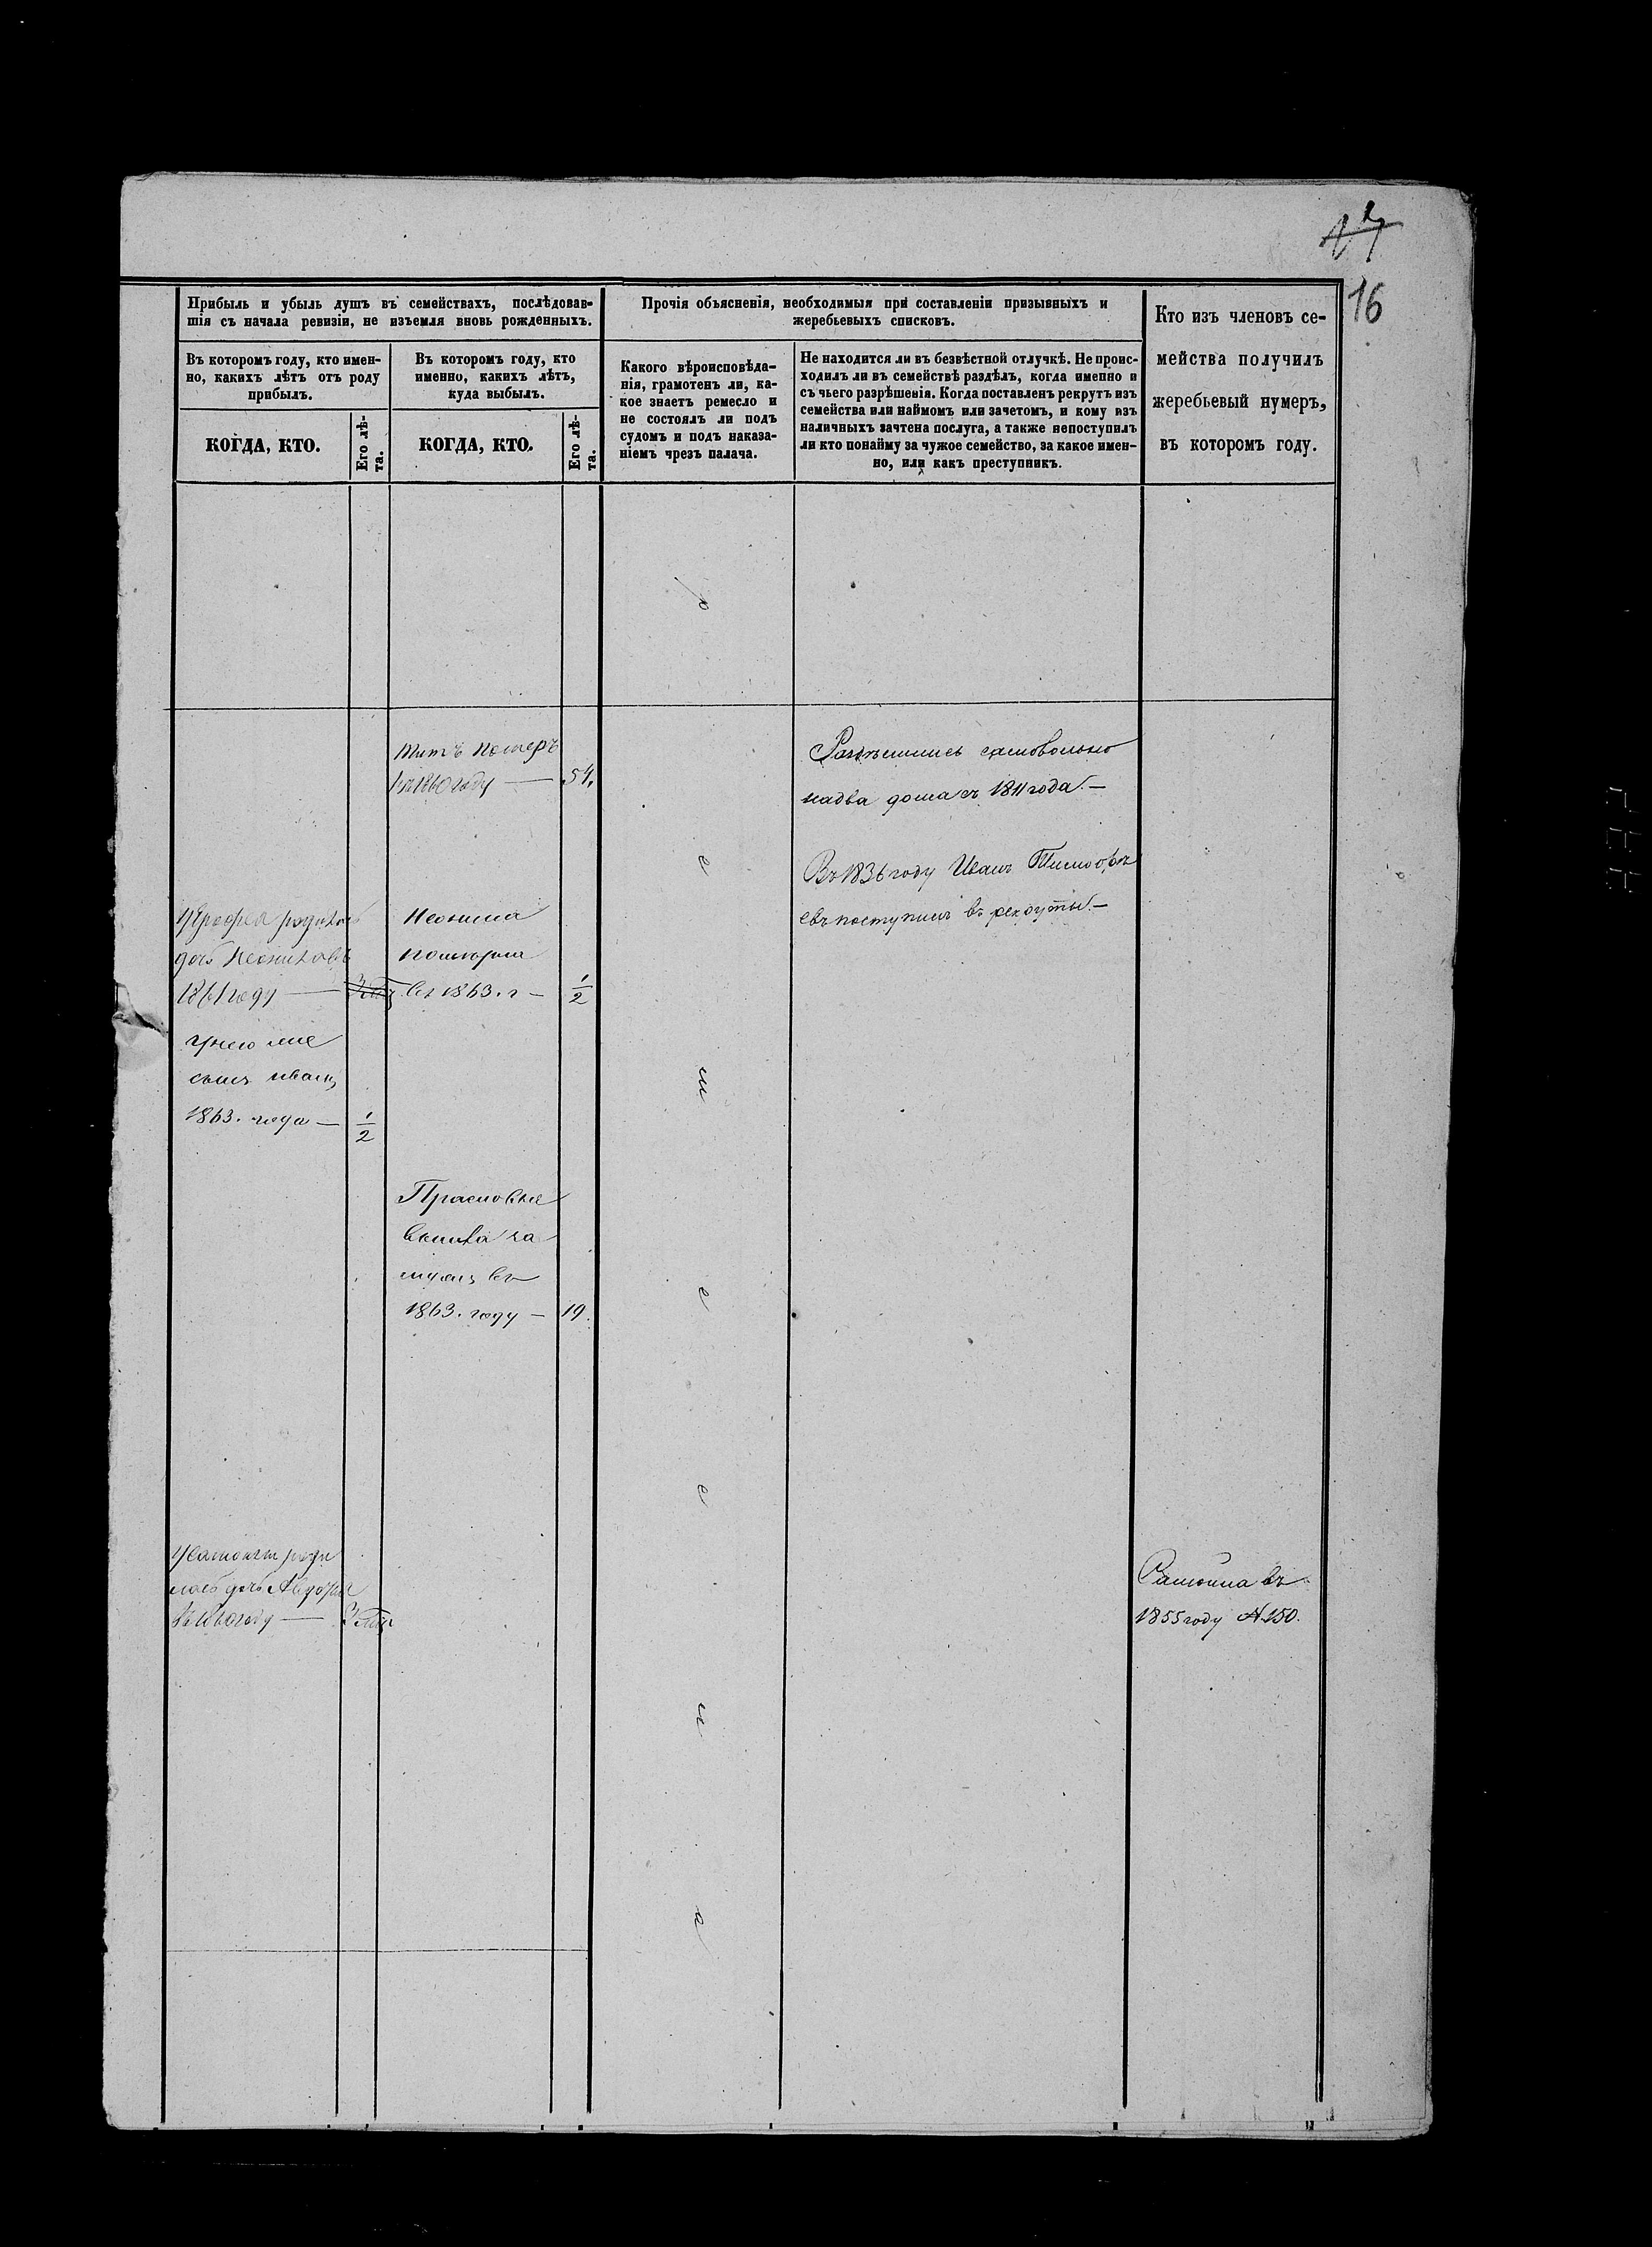 17
16
Прибыль и убыль душъ въ семействахъ, послѣдовав-
шія съ начала ревизіи, не изъемля вновь рожденныхъ.
Прочія объясненія, необходимыя при составленіи призывныхъ и
жеребьевыхъ списковъ.
Кто изъ членовъ се-
мейства получилъ
жеребьевый нумеръ,
въ которомъ году.
Въ которомъ году, кто имен-
но, какихъ лѣтъ отъ роду
прибылъ.
Въ которомъ году, кто
именно, какихъ лѣтъ,
куда выбылъ.
Какого вѣроисповѣда-
нія, грамотенъ ли, ка-
кое знаетъ ремесло и
не состоялъ ли подъ
судомъ и подъ наказа-
ніемъ чрезъ палача.
Не находится ли въ безвѣстной отлучкѣ. Не проис-
ходилъ ли въ семействѣ раздѣлъ, когда именно и
съ чьего разрѣшенія. Когда поставленъ рекрутъ изъ
семейства или наймомъ или зачетомъ, и кому изъ
наличныхъ зачтена послуга, а также непоступилъ
ли кто понайму за чужое семейство, за какое имен-
но, или какъ преступникъ.
КОГДА, КТО.
Его лѣ-
та.
КОГДА, КТО.
Его лѣ-
та.
Титъ померъ
въ 1860 году — 54.
Раздѣлились самовольно
надва дома съ 1811 года. —
Въ 1836 году Иванъ Тимофѣ
евъ поступилъ въ рекруты. —
дочь
1861 году —
померла
въ 1863. г — 1/2
у него же
сынъ Иванъ
1863. года — 1/2
Прасковья
вышла за
мужъ въ
1863. году — 19.
лась дочь Авдотья
году —
въ
1855 году № 150.